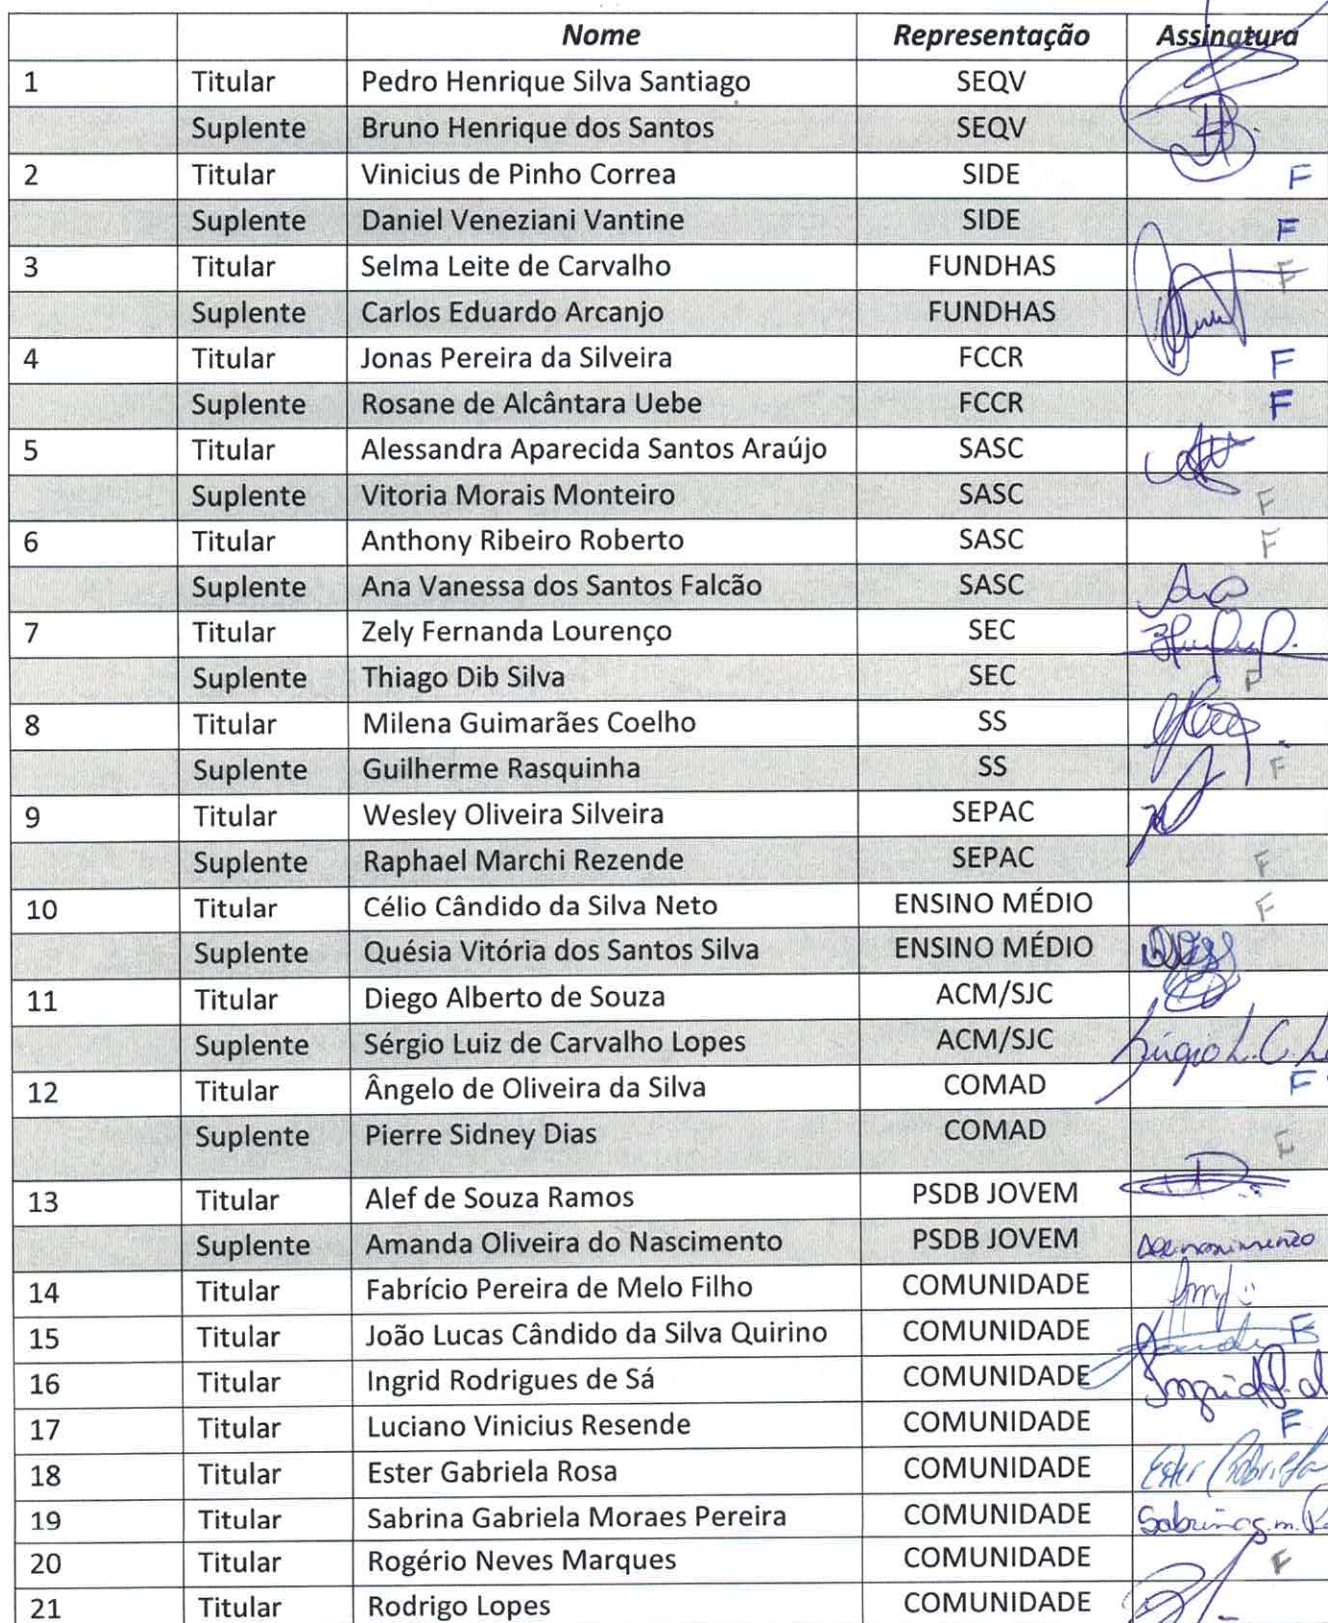 Nome Representação Assinatura
1 Titular Pedro Henrique Silva Santiago SEQV
Suplente Bruno Henrique dos Santos SEQV
2 Titular Vinicius de Pinho Correa SIDE F
Suplente Daniel Veneziani Vantine SIDE F
3 Titular Selma Leite de Carvalho FUNDHAS F
Suplente Carlos Eduardo Arcanjo FUNDHAS
4 Titular Jonas Pereira da Silveira FCCR F
Suplente Rosane de Alcântara Uebe FCCR F
5 Titular Alessandra Aparecida Santos Araújo SASC
Suplente Vitoria Morais Monteiro SASC F
6 Titular Anthony Ribeiro Roberto SASC F
Suplente Ana Vanessa dos Santos Falcão SASC
7 Titular Zely Fernanda Lourenço SEC
Suplente Thiago Dib Silva SEC F
8 Titular Milena Guimarães Coelho SS
Suplente Guilherme Rasquinha SS F
9 Titular Wesley Oliveira Silveira SEPAC
Suplente Raphael Marchi Rezende SEPAC F
10 Titular Célio Cândido da Silva Neto ENSINO MÉDIO F
Suplente Quésia Vitória dos Santos Silva ENSINO MÉDIO
11 Titular Diego Alberto de Souza ACM/SJC
Suplente Sérgio Luiz de Carvalho Lopes ACM/SJC Sérgio L. C. L
12 Titular Ângelo de Oliveira da Silva COMAD F
Suplente Pierre Sidney Dias COMAD F
13 Titular Alef de Souza Ramos PSDB JOVEM
Suplente Amanda Oliveira do Nascimento PSDB JOVEM
14 Titular Fabrício Pereira de Melo Filho COMUNIDADE
15 Titular João Lucas Cândido da Silva Quirino COMUNIDADE F
16 Titular Ingrid Rodrigues de Sá COMUNIDADE Ingrid
17 Titular Luciano Vinicius Resende COMUNIDADE F
18 Titular Ester Gabriela Rosa COMUNIDADE Ester Gabriela
19 Titular Sabrina Gabriela Moraes Pereira COMUNIDADE Sabrina G. M.
20 Titular Rogério Neves Marques COMUNIDADE F
21 Titular Rodrigo Lopes COMUNIDADE